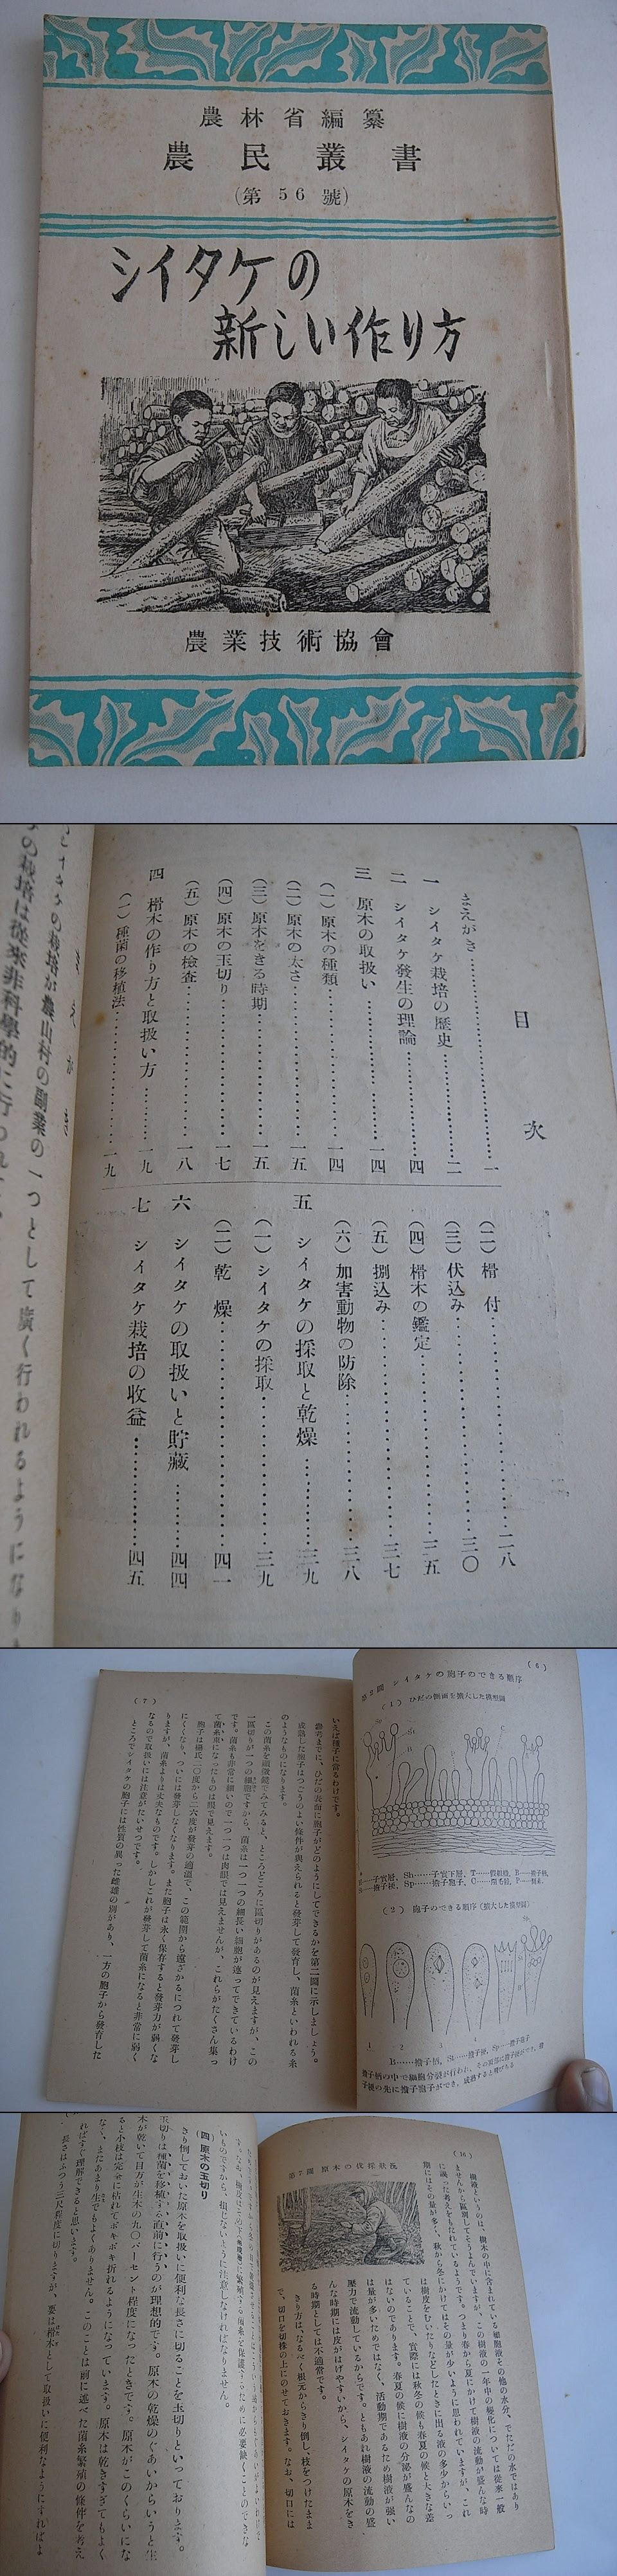 農林省編纂
農民叢書
(第56號)
シイタケの
新しい作り方
農業技術協會
目次
まえがき…一
一 シイタケ栽培の歴史…二
二 シイタケ發生の理論…四
三 原木の取扱い…一四
(一) 原木の種類…一四
(二) 原木の太さ…一五
(三) 原木をきる時期…一五
(四) 原木の玉切り…一七
(五) 原木の檢査…一八
四 榾木の作り方と取扱い方…一九
(一) 種菌の移植法…一九
(二) 榾付…二八
(三) 伏込み…三〇
(四) 榾木の鑑定…三五
(五) 捌込み…三七
(六) 加害動物の防除…三八
五 シイタケの採取と乾燥…三九
(一) シイタケの採取…三九
(二) 乾燥…四一
六 シイタケの取扱いと貯藏…四四
七 シイタケ栽培の收益…四五
まえがき
の栽培が農山村の副業の一つとして廣く行われるようになり
の栽培は從來非科學的に行われ
(6)
第2圖 シイタケの胞子のできる順序
(1) ひだの斷面を擴大した模型圖
(2) 胞子のできる順序(擴大した模型圖)
1 2 3 4
B……擔子柄, St……擔子梗, Sp……擔子胞子
擔子柄の中で細胞分裂が行われ、その頂部に擔子梗ができ、擔
子梗の先に擔子胞子ができ、成熟すると飛びちる
(7)
いえば種子に當るわけです。
參考までに、ひだの表面に胞子がどのようにしてできるかを第二圖に示しましょう。
成熟した胞子はつごうのよい條件が與えられると發芽して發育し、菌糸といわれる糸
のようなものになります。
この菌糸を顯微鏡でみてみると、ところどころに區切りがあるのが見えますが、この
一區切りが一つの細胞ですから、菌糸は一つ一つの細長い細胞が連ってできているわけ
です。菌糸も非常に細いので一つ一つは肉眼では見えませんが、これらがたくさん集っ
て菌糸束になったものは眼で見えます。
胞子は攝氏二〇度から二六度が發芽の適溫で、この範圍から遠ざかるにつれて發芽し
にくくなり、ついには發芽しなくなります。また胞子は永く保存すると發芽力が弱くな
りますが、菌糸よりは丈夫なものです。しかしこれが發芽して菌糸になると非常に弱く
なるので取扱いには注意がたいせつです。
ところでシイタケの胞子には性質の異った雌雄の別があり、一方の胞子から發育した
(16)
樹液というのは、樹木の中に含まれている細胞液その他の水分、でただの水ではあり
ませんから區別してそうよんでいますが、この樹液の一年中の變化については從來一般
に誤った考えをもたれているようです。つまり春から夏にかけて樹液の流動が盛んな時
期にはその量が多く、秋から冬にかけてはその量が少いように思われていますが、これ
は樹皮をむいたりなどしたときに出る液の多少からいっ
ていることで、實際には秋冬の候も春夏の候と大きな差
はないのであります。春夏の候に樹液の分泌が盛んなの
は量が多いためではなく、活動期であるため樹液が強い
壓力で流動しているからです。ともあれ樹液の流動の盛
んな時期には皮がはげやすいから、シイタケの原木をき
る時期としては不適當です。
きり方は、なるべく根元からきり倒し、枝をつけたまま
で、切口を切株の上にのせておきます。なお、切口には
第7圖 原木の伐採狀況
いものですから、損じないように注意しなければなりません。
(四) 原木の玉切り
きり倒しておいた原木を取扱いに便利な長さに切ることを玉切りといっております。
玉切りは種菌を移植する直前に行うのが理想的です。原木の乾燥のぐあいからいうと生
木が乾いて目方が生木の九〇パーセント程度になったときです。原木がこのくらいにな
ると小枝は完全に枯れてポキポキ折れるようになっています。原木は乾きすぎてもよく
なく、またあまり生でもよくありません。このことは前に述べた菌糸繁殖の條件を考え
ればすぐ理解できると思います。
長さはふつう三尺程度に切りますが、要は榾木として取扱いに便利なようにすればよ